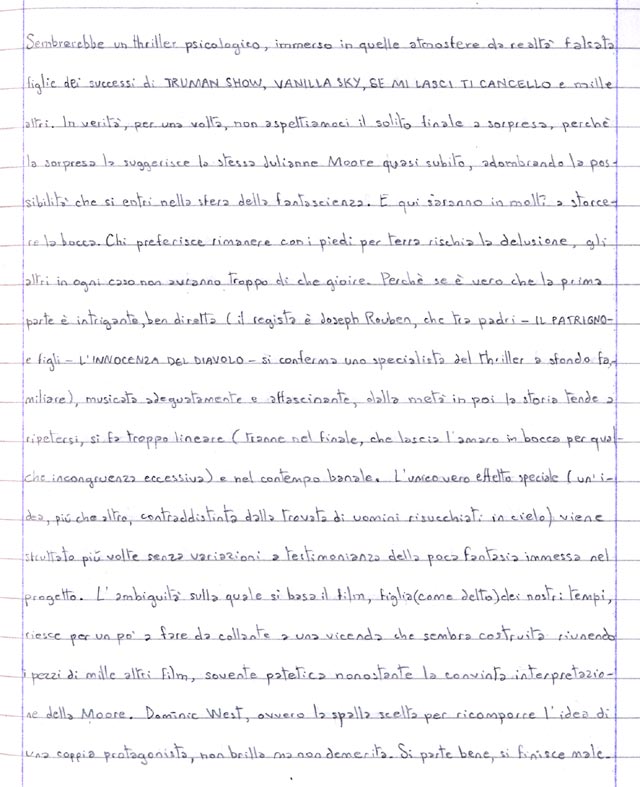 Sembrerebbe un thriller psicologico, immerso in quelle atmosfere da realtà falsata
figlie dei successi di TRUMAN SHOW, VANILLA SKY, SE MI LASCI TI CANCELLO e mille
altri. In verità, per una volta, non aspettiamoci il solito finale a sorpresa, perchè
la sorpresa la suggerisce la stessa Julianne Moore quasi subito, adombrando la pos-
sibilità che si entri nella sfera della fantascienza. E qui saranno in molti a storce-
re la bocca. Chi preferisce rimanere con i piedi per terra rischia la delusione, gli
altri in ogni caso non avranno troppo di che gioire. Perchè se è vero che la prima
parte è intrigante, ben diretta (il regista è Joseph Rouben, che tra padri - IL PATRIGNO-
e figli - L'INNOCENZA DEL DIAVOLO - si conferma uno specialista del thriller a sfondo fa-
miliare), musicata adeguatamente e affascinante, dalla metà in poi la storia tende a
ripetersi, si fa troppo lineare (tranne nel finale, che lascia l'amaro in bocca per qual-
che incongruenza eccessiva) e nel contempo banale. L'unico vero effetto speciale (un'i-
dea, più che altro, contraddistinta dalla trovata di uomini risucchiati in cielo) viene
sfruttato più volte senza variazioni a testimonianza della poca fantasia immessa nel
progetto. L'ambiguità sulla quale si basa il film, figlia (come detto) dei nostri tempi,
riesce per un po' a fare da collante a una vicenda che sembra costruita riunendo
i pezzi di mille altri film, sovente patetica nonostante la convinta interpretazio-
ne della Moore. Dominic West, ovvero la spalla scelta per ricomporre l'idea di
una coppia protagonista, non brilla ma non demerita. Si parte bene, si finisce male.